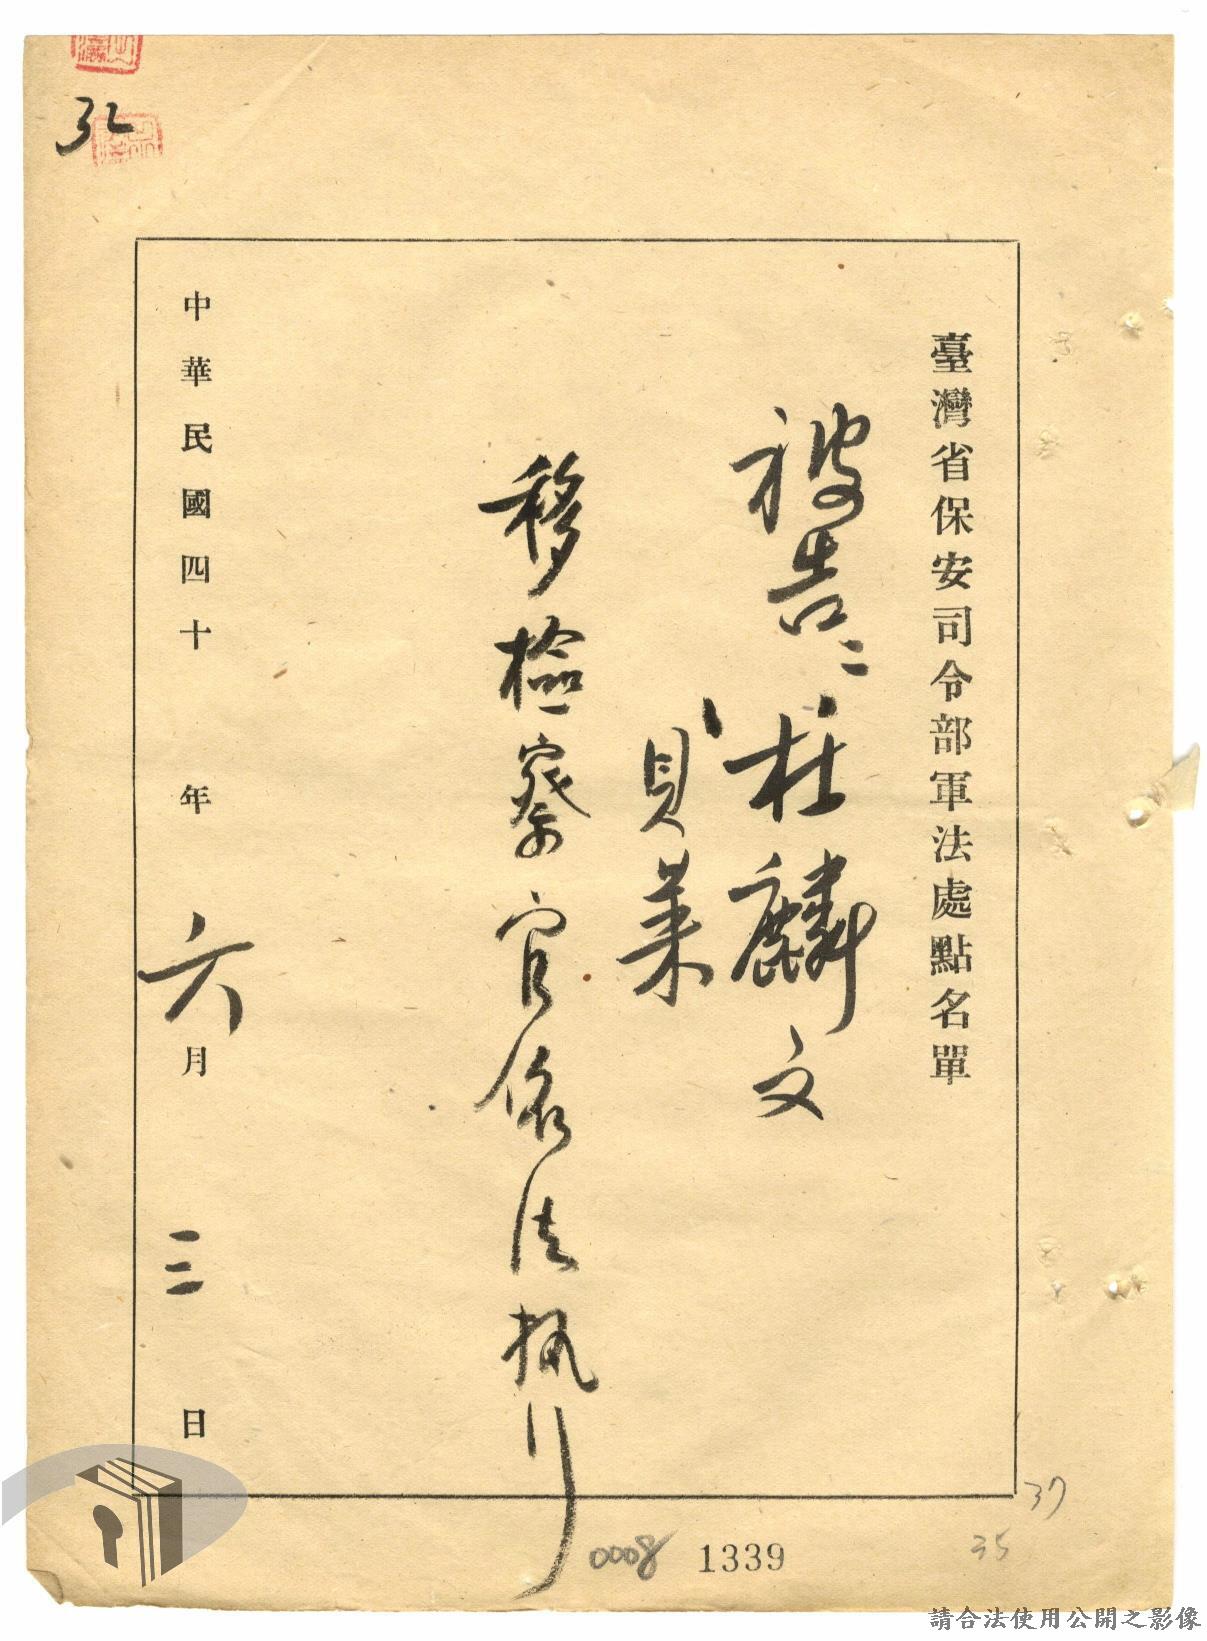 臺灣省保安司令部軍法處點名單
被告：杜麟文
貝萊
移檢察官依法執行
中華民國四十年六月三日
32
37
35
0008
1339
請合法使用公開之影像